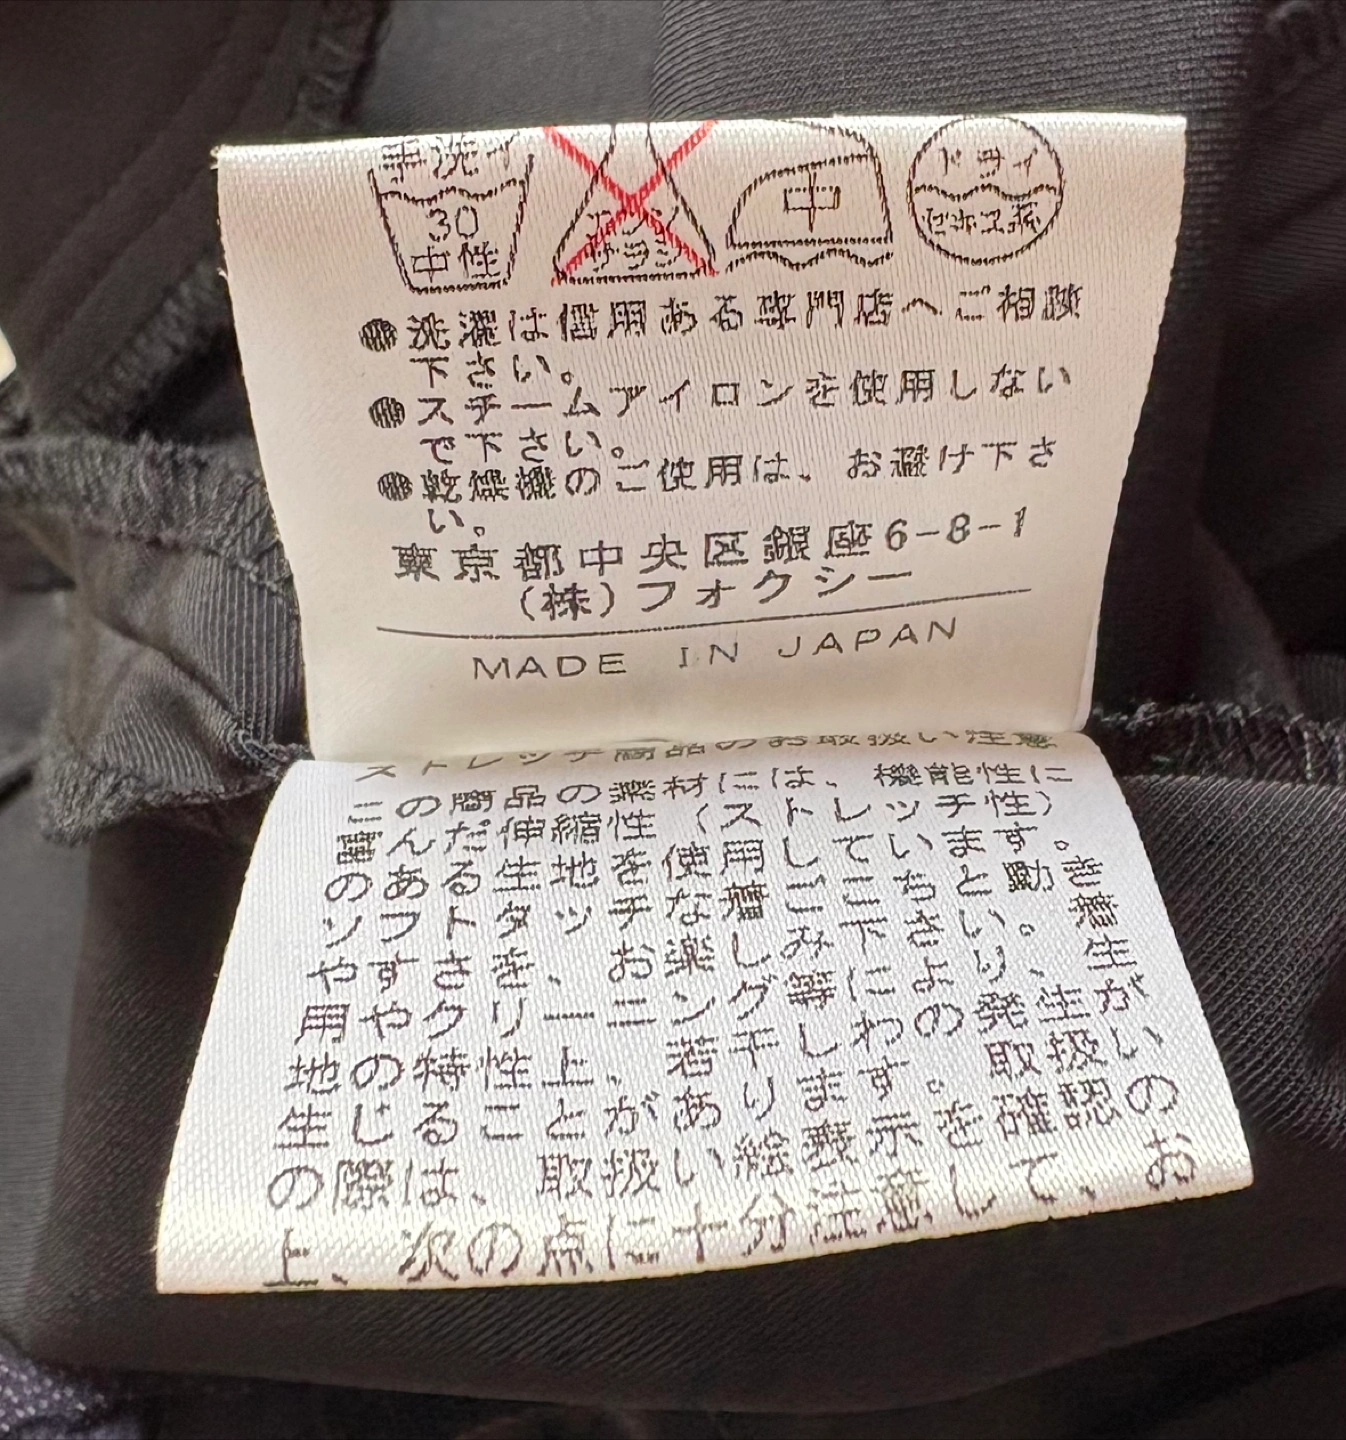 手洗イ
30
中性
エンソ
サラシ
中
ドライ
セキユ系
●洗濯は信用ある専門店へご相談
下さい。
●スチームアイロンを使用しない
で下さい。
●乾燥機のご使用は、お避け下さ
い。
東京都中央区銀座6-8-1
(株)フォクシー
MADE IN JAPAN
ストレッチ商品のお取扱い注意
この商品の素材には、機能性に
富んだ伸縮性(ストレッチ性)
のある生地を使用しています。
ソフトタッチな着ごこちと動き
やすさを、お楽しみ下さい。着
用やクリーニング等により、生
地の特性上、若干しわの発生が
生じることがあります。取扱い
の際は、取扱い絵表示を確認の
上、次の点に十分注意して、お